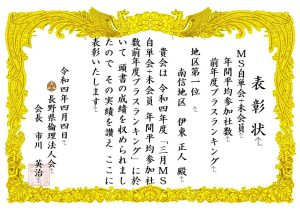 表彰状
MS自単会+未会員
年間平均参加社数
前年度プラスランキング
地区第一位
南信地区 伊東 正人 殿
貴会は 令和四年度「三月MS
自単会+未会員 年間平均参加社
数前年度プラスランキング」に於
いて 頭書の成績を収められまし
たので その実績を讃え ここに
表彰いたします
令和四年四月四日
長野県倫理法人会
会長 市川 英治